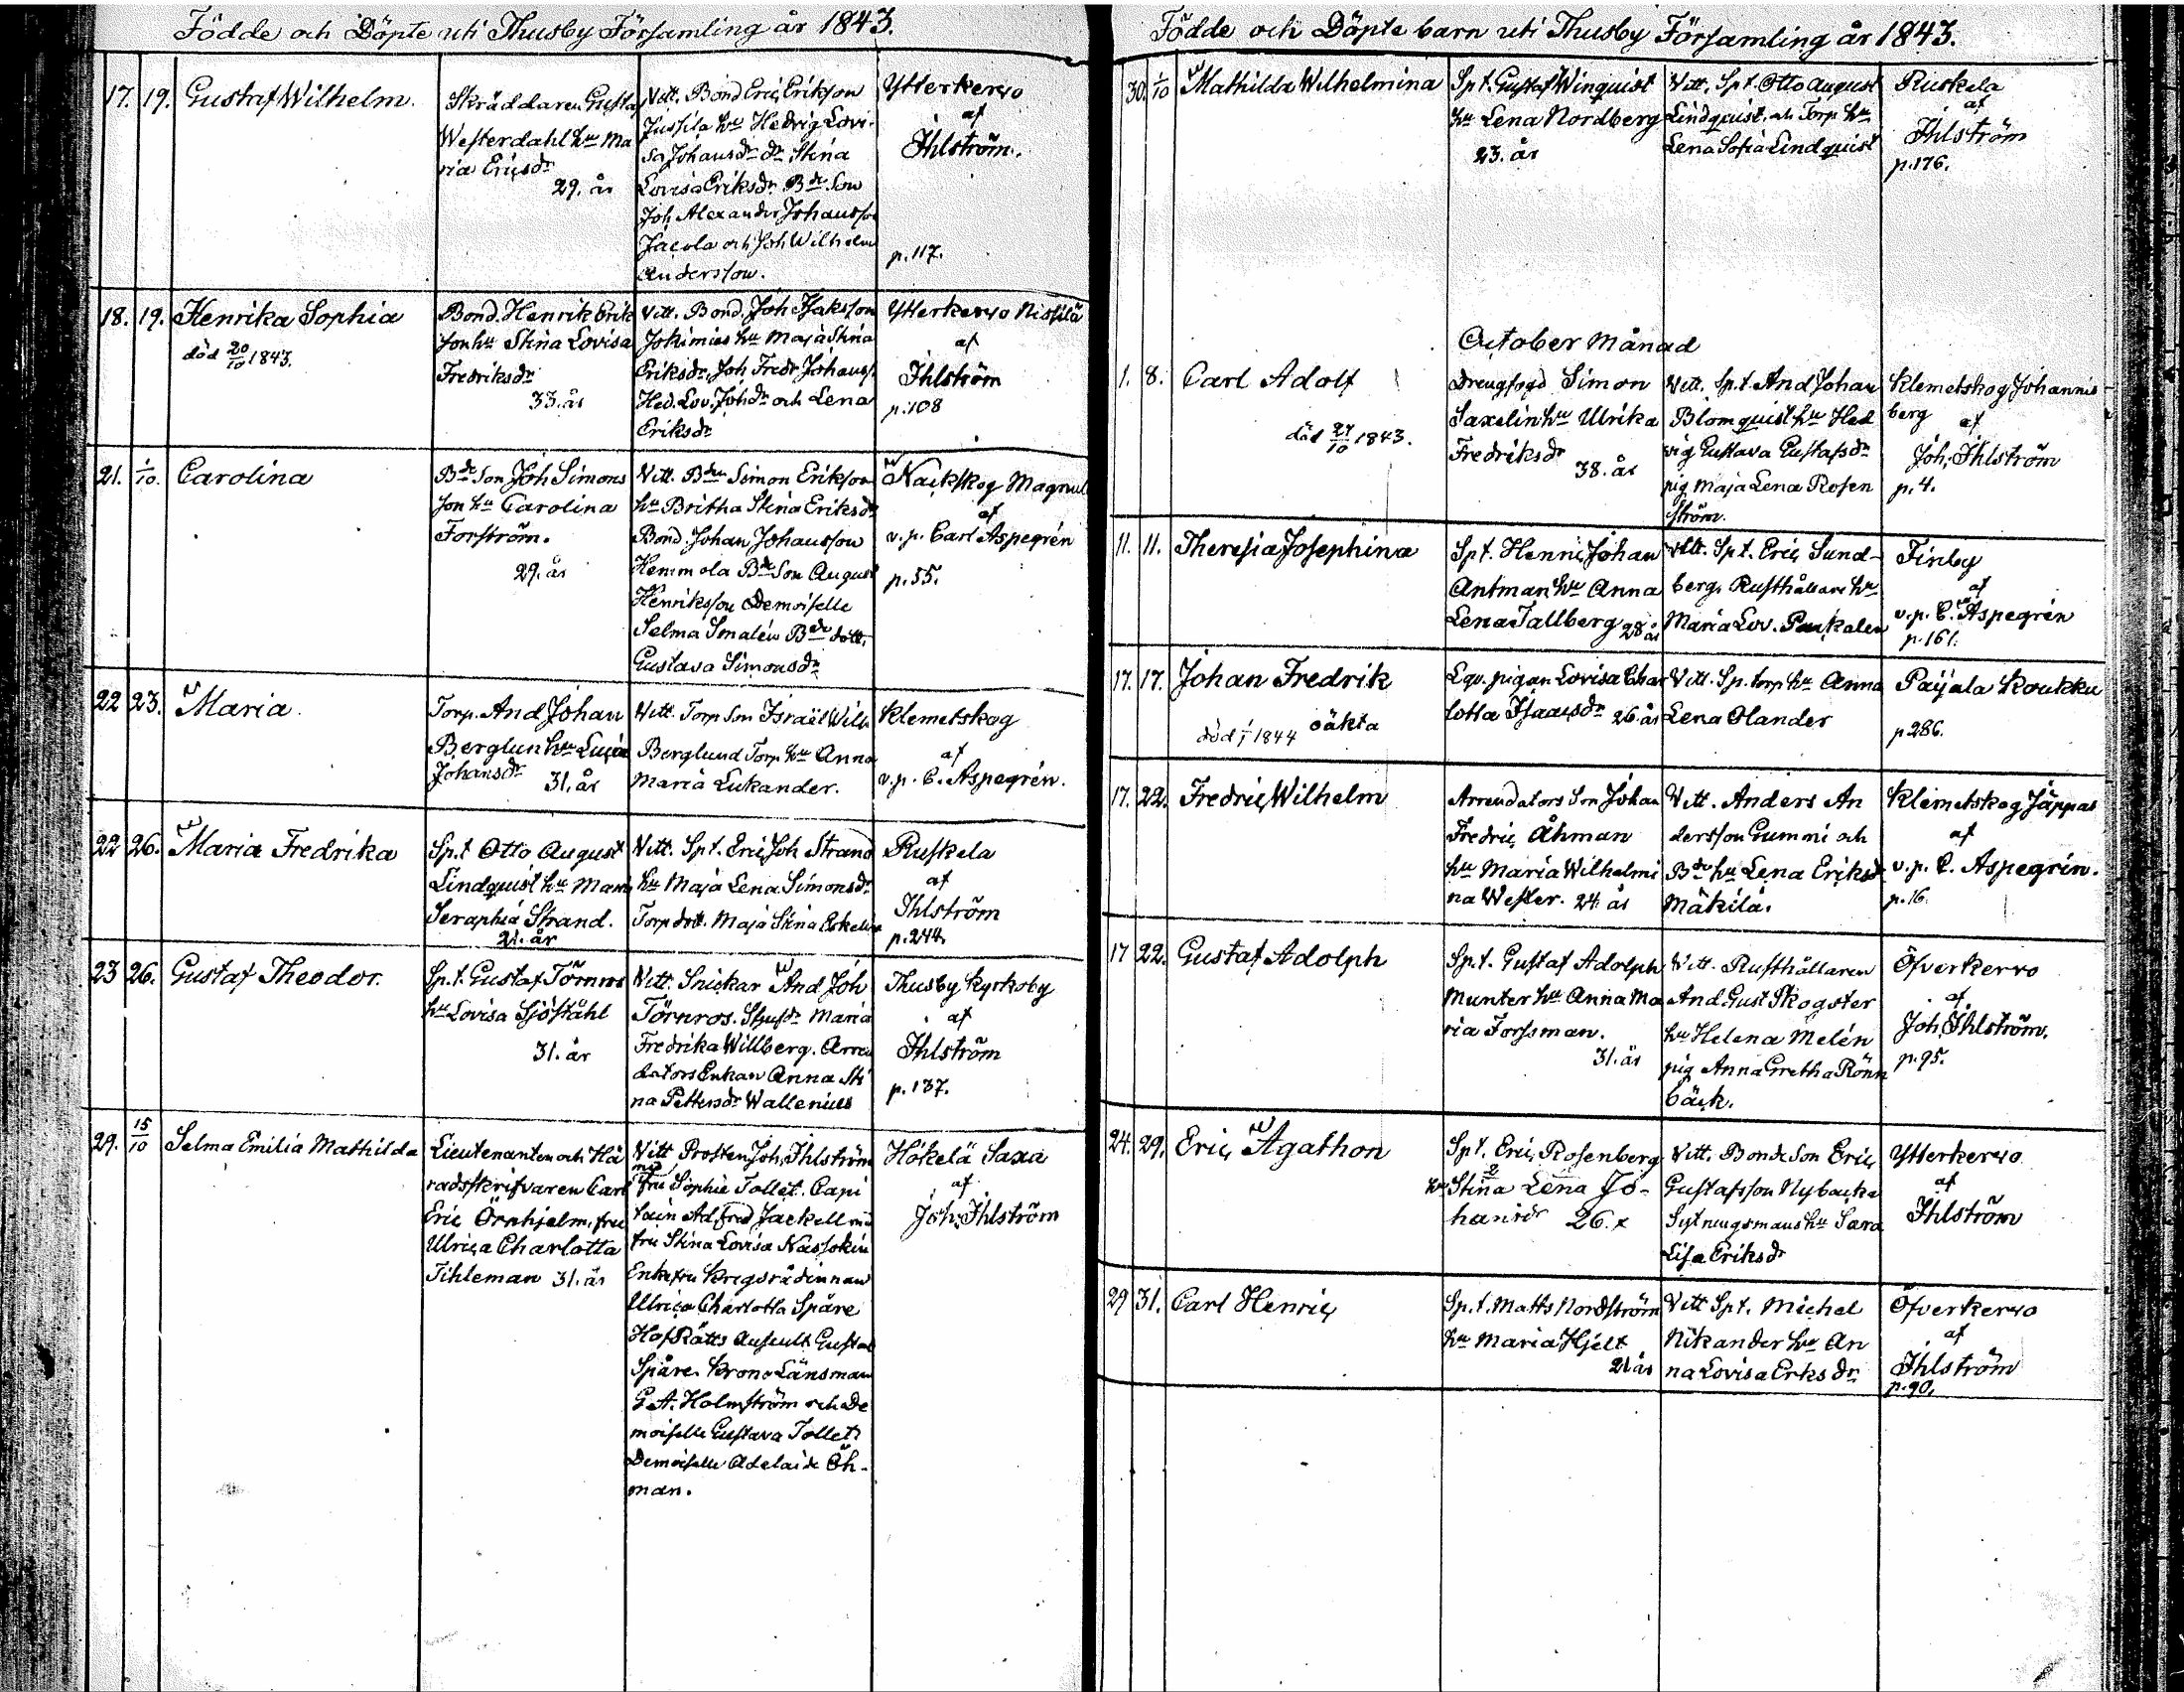 Födde och Döpte uti Thusby Församling år 1843.
17. 19. Gustaf Wilhelm.
Skräddaren Gustaf
Westerdahl hu Ma
ria Ericsdr
29. år
Vitt. Bond Eric Erikson
Jussila hu Hedvig Lovi-
sa Johansdr dr Stina
Lovisa Eriksdr Bde Son
Joh Alexander Johansson
Jacola och Joh Wilhelm
Andersson.
Ytterkervo
af
Ihlström.
p. 117.
18. 19. Henrika Sophia
död 20/10 1843.
Bond. Henrik Erik
son hu Stina Lovisa
Fredriksdr
33. år
Vitt. Bond. Joh Isaksson
Jokimies hu Maja Stina
Eriksdr, Joh Fredr Johanss.
Hed. Lov. Johdr och Lena
Eriksdr
Ytterkervo Nissilä
af
Ihlström
p. 108
21. 1/10. Carolina
Bde Son Joh Simons
son hu Carolina
Forström.
29. år
Vitt. Bden Simon Erikson
hu Britha Stina Eriksdr
Bond. Johan Johansson
Hemmola Bde Son August
Henriksson Demoiselle
Selma Smalén Bde dott.
Gustava Simonsdr
Nackskog Magnul
af
v. p. Carl Aspegrén
p. 55.
22 23. Maria.
Torp. And Johan
Berglun hu Lucia
Johansdr
31. år
Vitt. Torp Son Israël Wilh
Berglund Torp hu Anna
Maria Lukander.
Klemetskog
af
v. p. C. Aspegrén.
22 26. Maria Fredrika
Sp.t Otto August
Lindquist hu Maria
Seraphia Strand.
21. år
Vitt. Sp.t. Eric Joh Strand
hu Maja Lena Simonsdr
Torp dott. Maja Stina Eskelin
Ruskela
af
Ihlström
p. 244.
23 26. Gustaf Theodor.
Sp.t. Gustaf Törnros
hu Lovisa Sjöståhl
31. år
Vitt. Snickar And Joh
Törnros. Stjufdr Maria
Fredrika Willberg. Arren
dators Enkan Anna Sti
na Pettersdr Wallenius
Thusby Kyrkoby
af
Ihlström
p. 137.
29. 15/10 Selma Emilia Mathilda
Lieutenanten och Hä
radsskrifvaren Carl
Eric Örnhjelm, fru
Ulrica Charlotta
Tihleman 31. år
Vitt Prosten Joh. Ihlström
med fru Sophie Tollet. Capi
tain Ad Fred Jackell med
fru Stina Lovisa Nassokin
Enkefru Krigsrådinnan
Ulrica Charlotta Spåre
HofRätts Auscult Gustaf
Spåre. Krono Länsman
G. A. Holmström och De
moiselle Gustava Tollet
Demoiselle Adelaide Öh-
man.
Hökelä Saxa
af
Joh. Ihlström
Födde och Döpte barn uti Thusby Församling år 1843.
30. 1/10 Mathilda Wilhelmina
Sp.t. Gustaf Winquist
hu Lena Nordberg
23. år
Vitt. Sp.t. Otto August
Lindquist. och Torp hu
Lena Sofia Lindquist
Ruskela
af
Ihlström
p. 176.
October Månad
1. 8. Carl Adolf
död 27/10 1843.
Drengfogd Simon
Saxelin hu Ulrika
Fredriksdr
38. år
Vitt. Sp.t. And Johan
Blomquist hu Hed
vig Gustava Gustafsdr
pig Maja Lena Rosen
ström.
Klemetskog Johannis
berg
af
Joh. Ihlström
p. 4.
11. 11. Theresia Josephina
Sp.t. Henric Johan
Antman hu Anna
Lena Tallberg 28 år
Vitt. Sp.t. Eric Sund-
berg. Rusthållare hu
Maria Lov. Paukalen
Finby
af
v. p. C. Aspegrén
p. 161.
17. 17. Johan Fredrik
oäkta
1844
Lqv. pigan Lovisa Char
lotta Isaacsdr 26. år
Vitt. Sp. torp hu Anna
Lena Olander
Paijala Koukku
p 286.
17. 22. Fredric Wilhelm
Arrendators Son Johan
Fredric Åhman
hu Maria Wilhelmi
na Wester. 24. år
Vitt. Anders An
dersson Gummi och
Bde hu Lena Eriksdr
Mäkilä.
Klemetskog Jäppas
af
v. p. C. Aspegrén.
p. 16.
17 22. Gustaf Adolph
Sp.t. Gustaf Adolph
Munter hu Anna Ma
ria Forssman.
31. år
Vitt. Rusthållaren
And. Gust Skogster
hu Helena Melén
pig Anna Gretha Rönn
bäck.
Öfverkervo
af
Joh Ihlström.
p. 95.
24. 29. Eric Agathon
Sp.t. Eric Rosenberg
hu Stina Lena Jo-
hansdr 26.
Vitt. Bonde Son Eric
Gustafsson Nybacka
Sytningsmans hu Sara
Lisa Eriksdr
Ytterkervo
af
Ihlström
29 31. Carl Henric
Sp.t. Matts Nordström
hu Maria Hjelt
21 år
Vitt Sp.t. Michel
Nikander hu An
na Lovisa Erksdr.
Öfverkervo
af
Ihlström
p. 90.